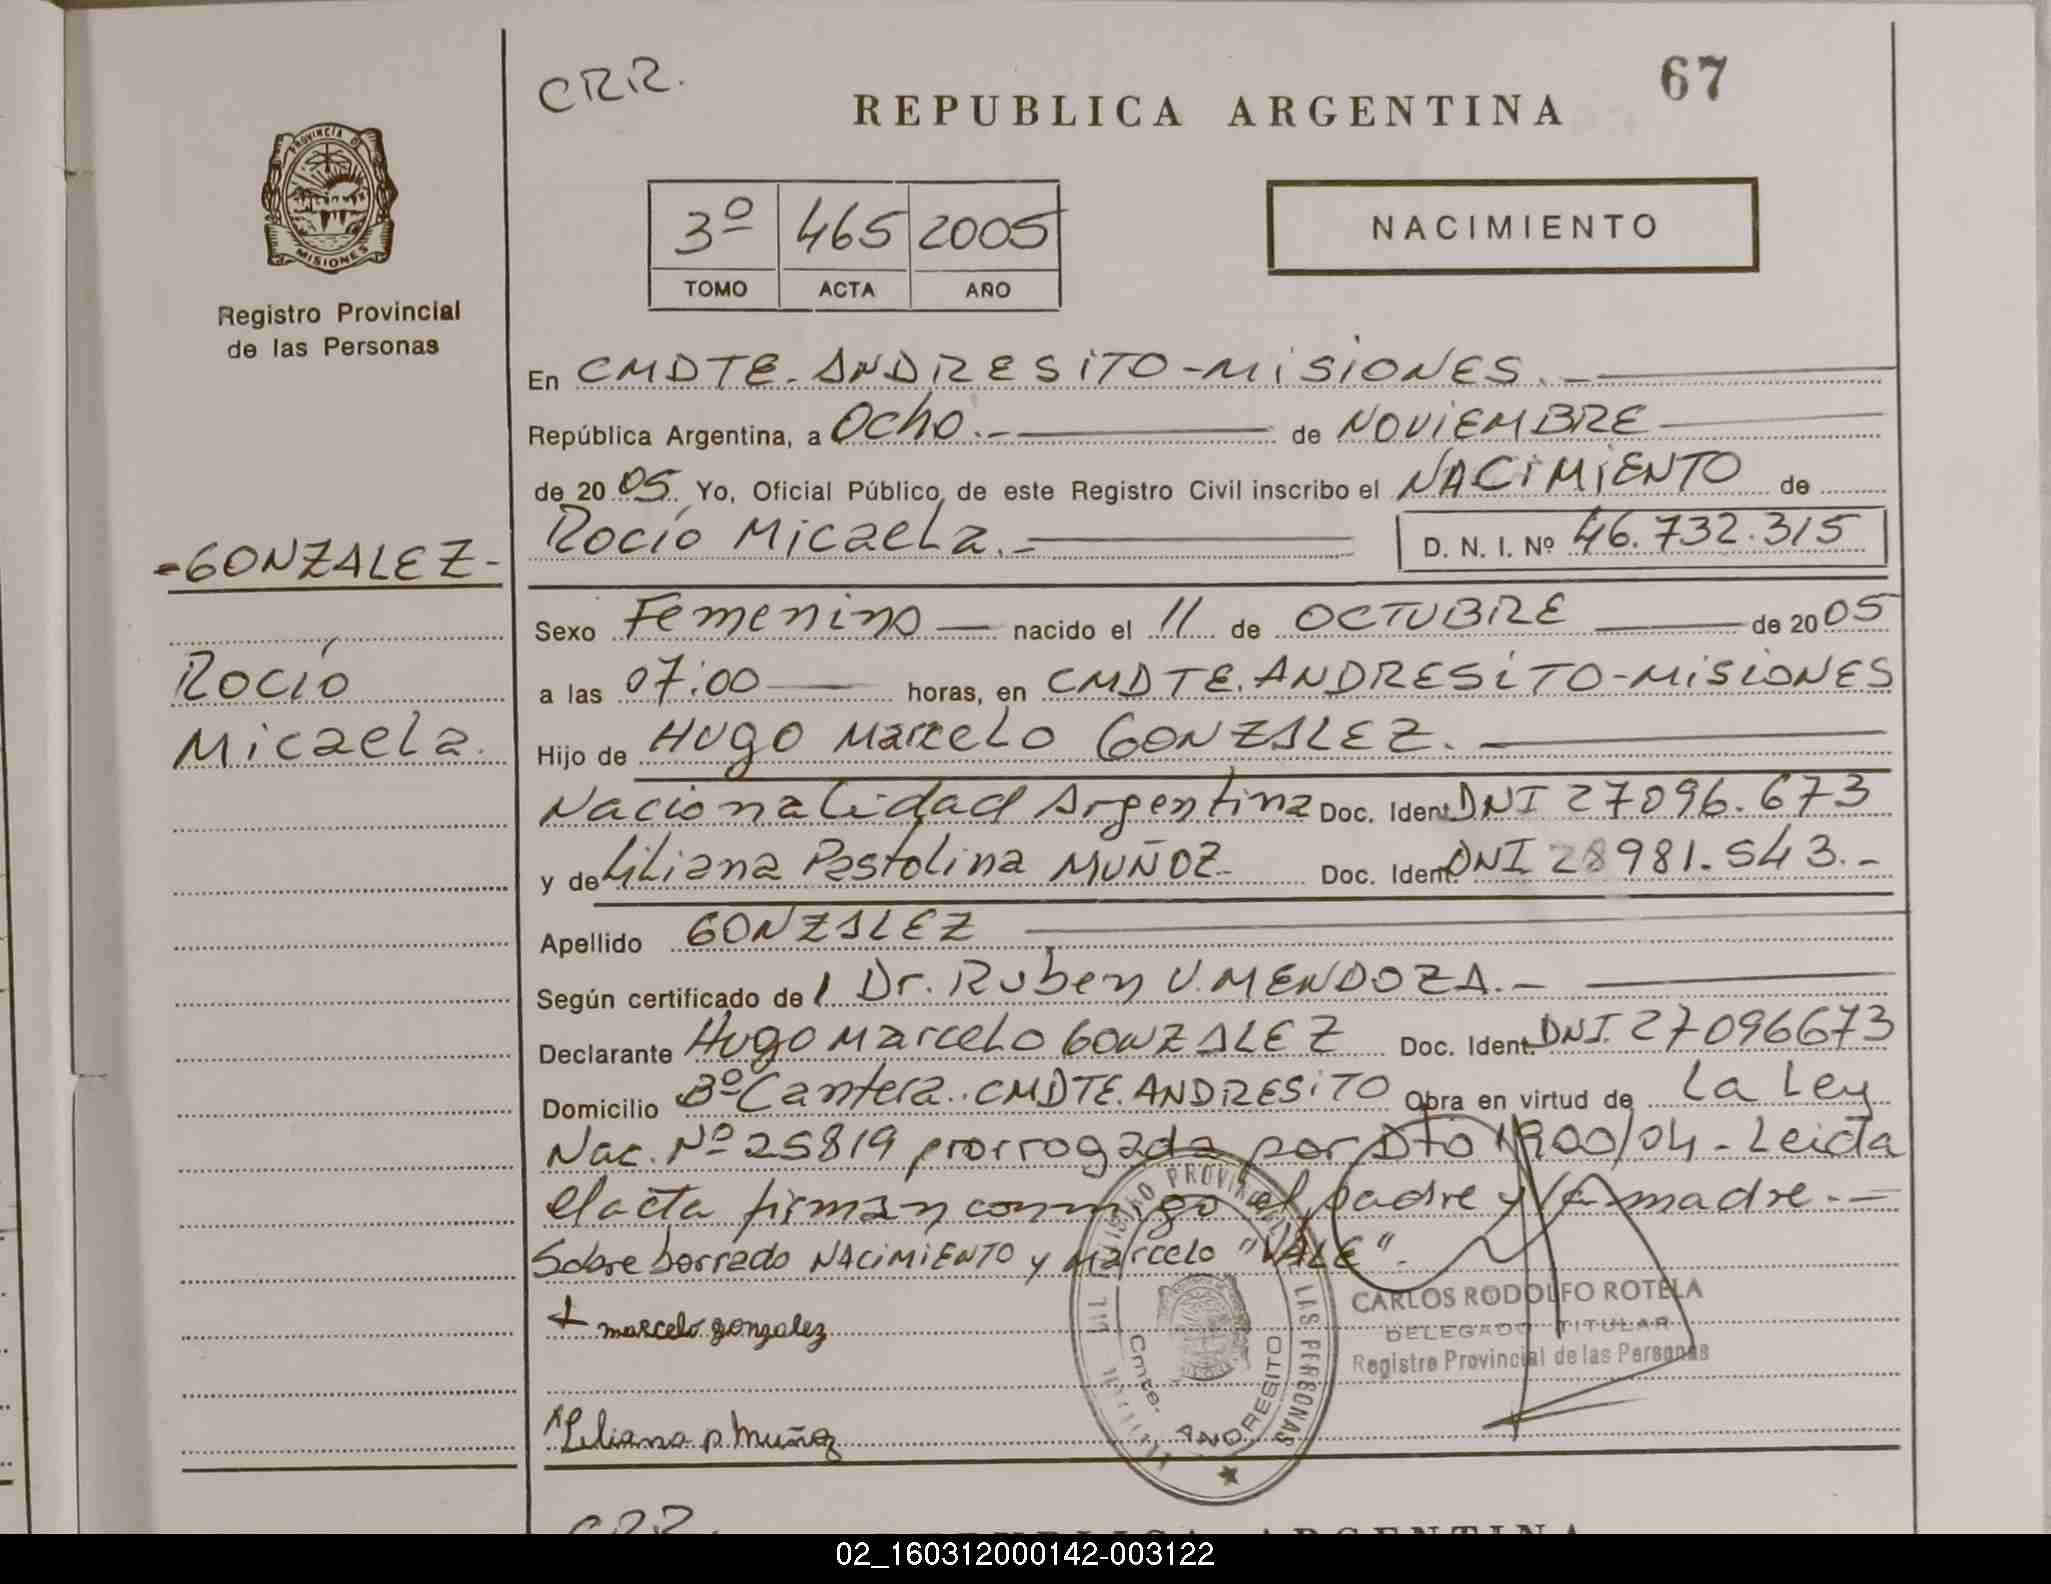 CRR.
67
REPUBLICA ARGENTINA
PROVINCIA DE
MISIONES
3º 465 2005
TOMO ACTA AÑO
NACIMIENTO
Registro Provincial
de las Personas
En CMDTE. ANDRESITO - MISIONES. -
República Argentina, a Ocho. - de NOVIEMBRE
de 20 05. Yo, Oficial Público, de este Registro Civil inscribo el NACIMIENTO de
- GONZALEZ -
Rocío Micaela. - D. N. I. Nº 46.732.315
Sexo Femenino nacido el 11 de OCTUBRE de 20 05
Rocío
a las 07:00 horas, en CMDTE. ANDRESITO - MISIONES
Micaela.
Hijo de Hugo Marcelo GONZALEZ. -
Nacionalidad Argentina Doc. Ident. DNI 27096.673
y de Liliana Pastolina MUÑOZ - Doc. Ident. DNI 28981.543. -
Apellido GONZALEZ
Según certificado de l Dr. Ruben V. MENDOZA. -
Declarante Hugo Marcelo GONZALEZ Doc. Ident. DNI. 27096673
Domicilio Bº Cantera. CMDTE. ANDRESITO Obra en virtud de La Ley
Nac. Nº 25819 prorrogada por Dto 1900/04 - Leida
el acta firman conmigo el padre y la madre. -
Sobre borrado NACIMIENTO y Marcelo "VALE".
+ marcelo gonzalez
CARLOS RODOLFO ROTELA
DELEGADO TITULAR
Registro Provincial de las Personas
REGISTRO PROVINCIAL DE LAS PERSONAS
Cmte. ANDRESITO
Liliana P Muñoz
CRR.
REPUBLICA ARGENTINA
02_160312000142-003122